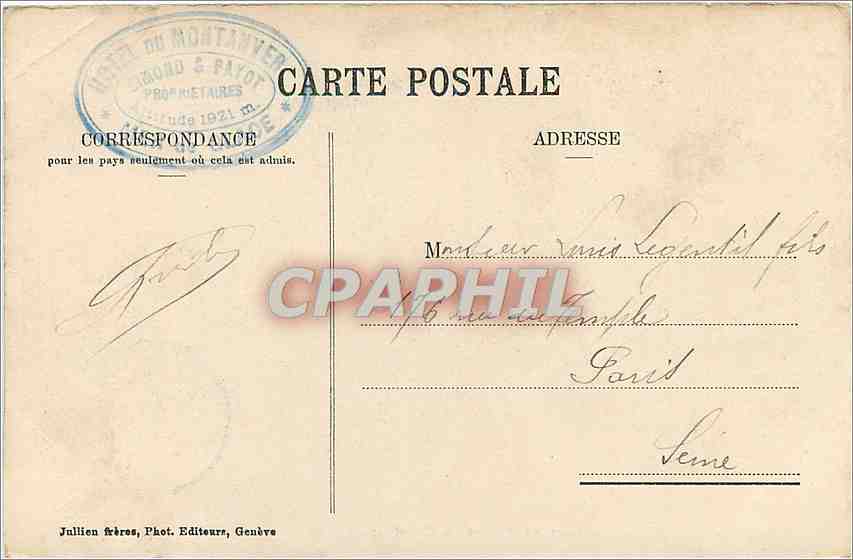 HOTEL DU MONTANVERT
SIMOND & PAYOT
PROPRIETAIRES
Altitude 1921 m.
CARTE POSTALE
CORRESPONDANCE
pour les pays seulement où cela est admis.
ADRESSE
Monsieur Louis Legentil fils
CPAPHIL
176 rue du Temple
Paris
Seine
Jullien frères, Phot. Editeurs, Genève